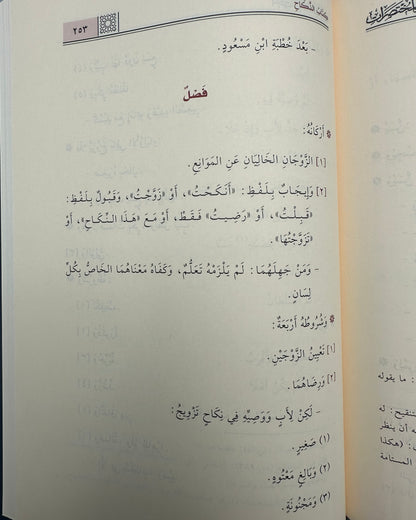 كتاب النكاح
٢٥٣
- بَعْدَ خُطْبَةِ ابْنِ مَسْعُودٍ.
فَصْلٌ
* أَرْكَانُهُ:
[١] الزَّوْجَانِ الخَالِيَانِ عَنِ المَوَانِعِ.
[٢] وَإِيجَابٌ بِلَفْظِ: «أَنْكَحْتُ»، أَوْ «زَوَّجْتُ»، وَقَبُولٌ بِلَفْظِ:
«قَبِلْتُ»، أَوْ «رَضِيتُ» فَقَطْ، أَوْ مَعَ «هَذَا النِّكَاحِ»، أَوْ
«تَزَوَّجْتُهَا».
- وَمَنْ جَهِلَهُمَا: لَمْ يَلْزَمْهُ تَعَلُّمٌ، وَكَفَاهُ مَعْنَاهُمَا الخَاصُّ بِكُلِّ
لِسَانٍ.
* وَشُرُوطُهُ أَرْبَعَةٌ:
[١] تَعْيِينُ الزَّوْجَيْنِ.
[٢] وَرِضَاهُمَا.
- لَكِنْ لِأَبٍ وَوَصِيِّهِ فِي نِكَاحٍ تَزْوِيجُ:
(١) صَغِيرٍ.
(٢) وَبَالِغٍ مَعْتُوهٍ.
(٣) وَمَجْنُونَةٍ.
: ما يقوله
تنقيح: له
ه أن ينظر
: (هكذا
المستامة